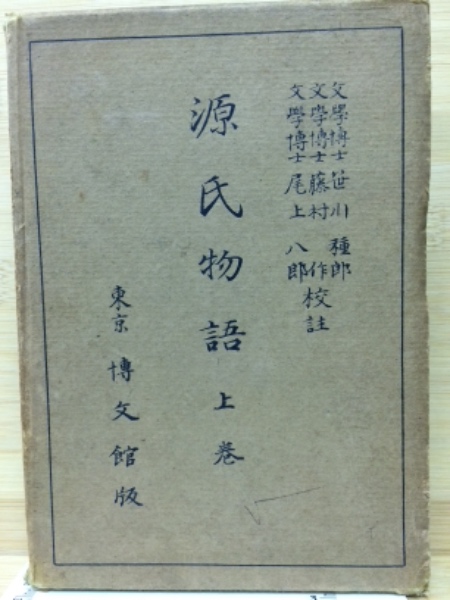 文學博士 笹川 種郎
文学博士 藤村 作 校註
文學博士 尾上 八郎
源氏物語 上巻
東京 博文館版